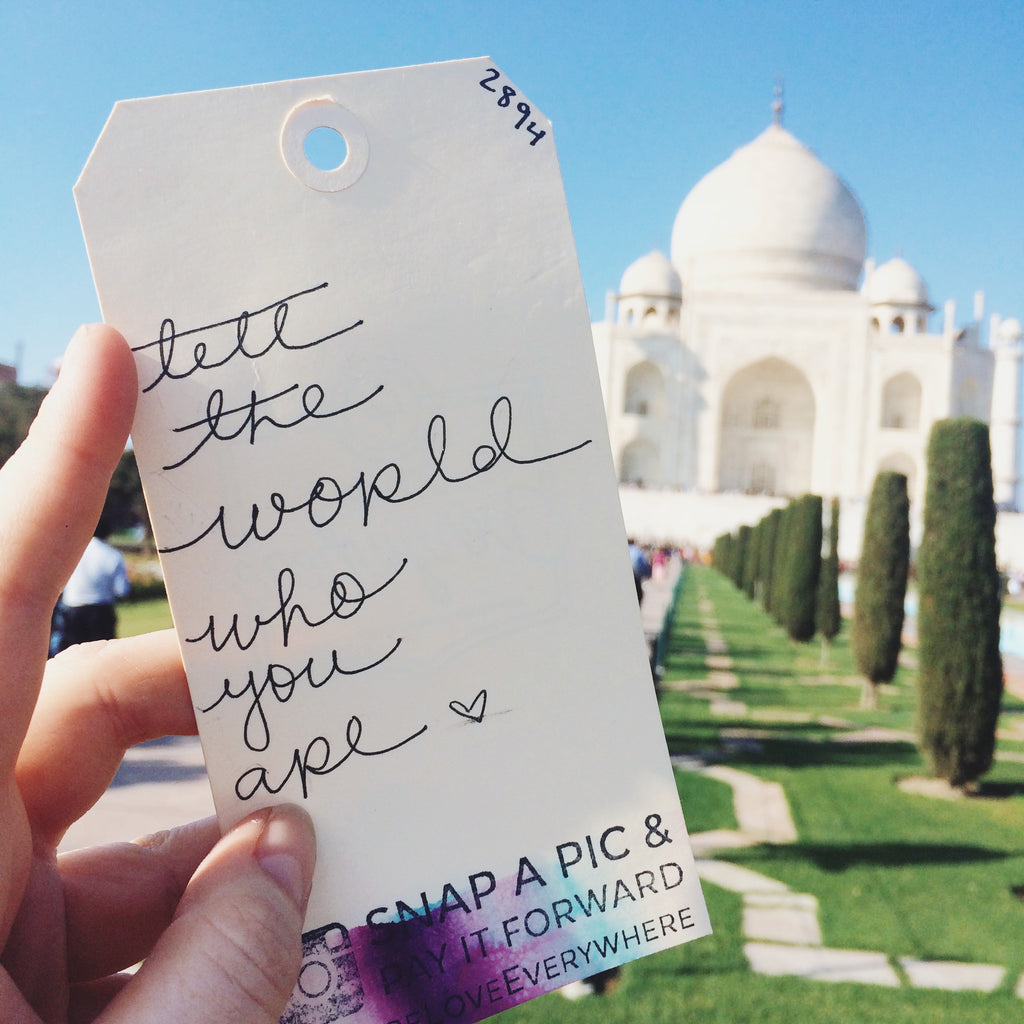 2894
tell
the
world
who
you
are ♡
SNAP A PIC &
PAY IT FORWARD
BELOVEEVERYWHERE